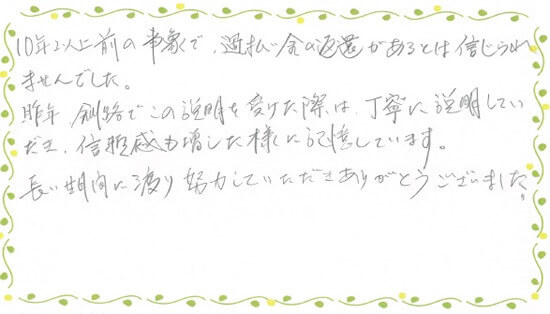 10年以上前の事象で、過払い金の返還があるとは信じられ
ませんでした。
昨年 釧路でこの説明を受けた際は、丁寧に説明してい
だき、信頼感も増した様に記憶しています。
長い期間に渡り努力していただきありがとうございました。